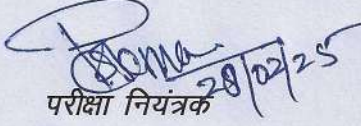 28/02/25
परीक्षा नियंत्रक